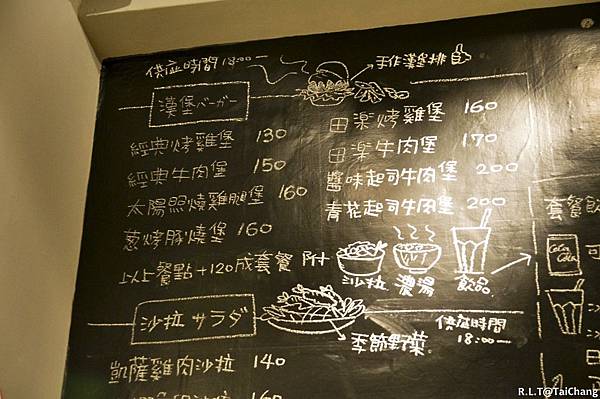 供應時間 18:00
手作漢排
漢堡バーガー
經典烤雞堡 130
經典牛肉堡 150
太陽照燒雞腿堡 160
蔥烤豚燒堡 160
田樂烤雞堡 160
田樂牛肉堡 170
醬味起司牛肉堡 200
青花起司牛肉堡 200
以上餐點+120成套餐 附
沙拉 濃湯 飲品
套餐飲
Coca Cola
可
沙拉 サラダ
季節野菜
供應時間
18:00
凱薩雞肉沙拉 140
160
R.L.T@TaiChang